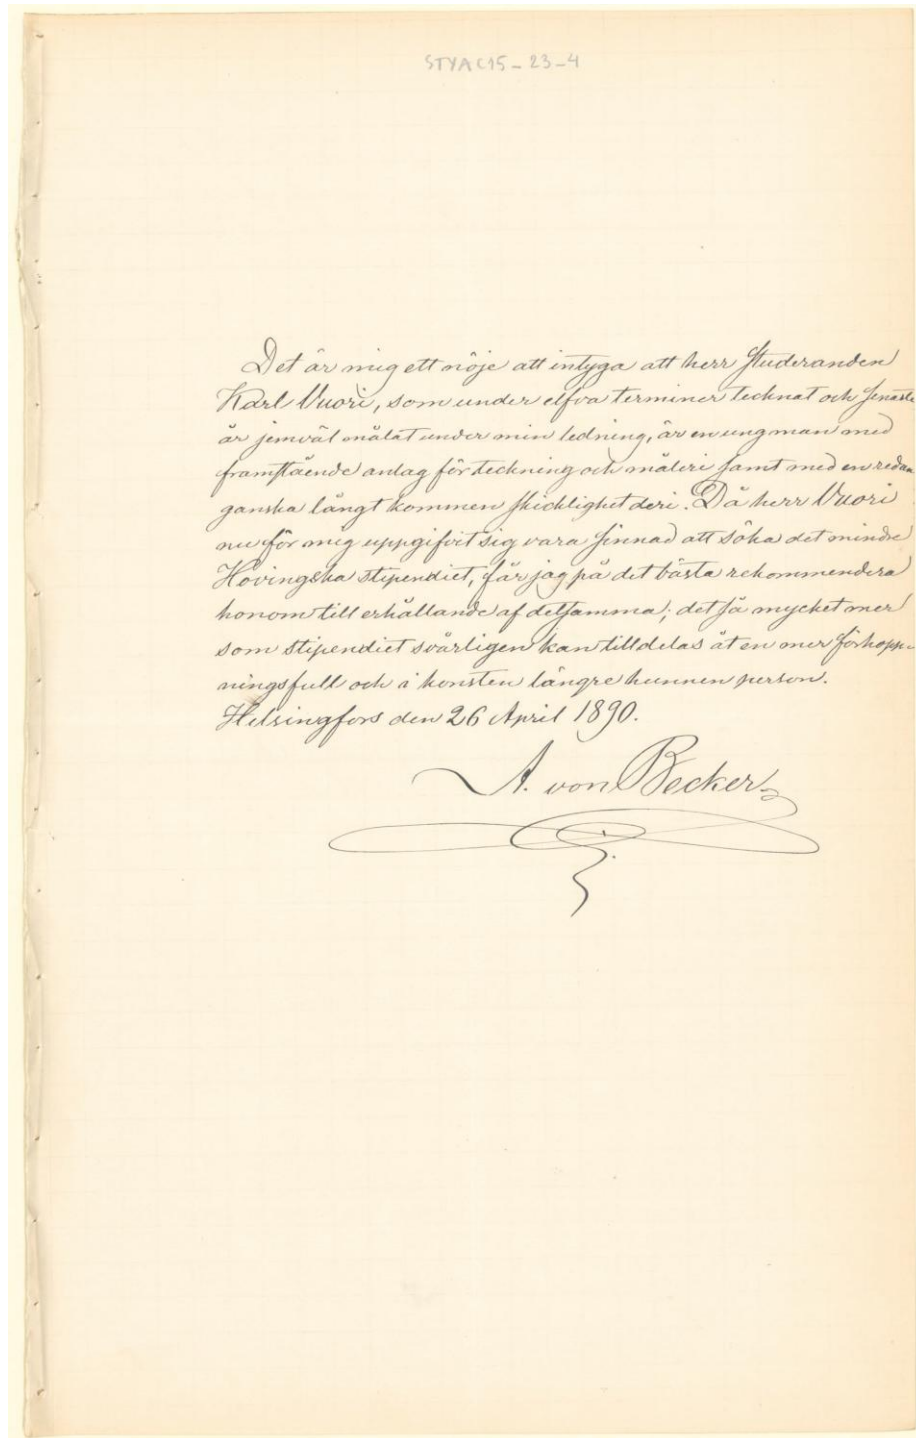 STYA C15-23-4
Det är mig ett nöje att intyga att herr Studeranden
Karl Vuori, som under elfva terminer tecknat och senaste
år jemväl målat under min ledning, är en ung man med
framstående anlag för teckning och måleri samt med en redan
ganska långt kommen skicklighet deri. Då herr Vuori
nu för mig uppgifvit sig vara sinnad att söka det mindre
Hovingska stipendiet, får jag på det bästa rekommendera
honom till erhållande af detsamma; det så mycket mer
som stipendiet svårligen kan tilldelas åt en mer förhopp-
ningsfull och i konsten längre hunnen person.
Helsingfors den 26 April 1890.
A. von Becker